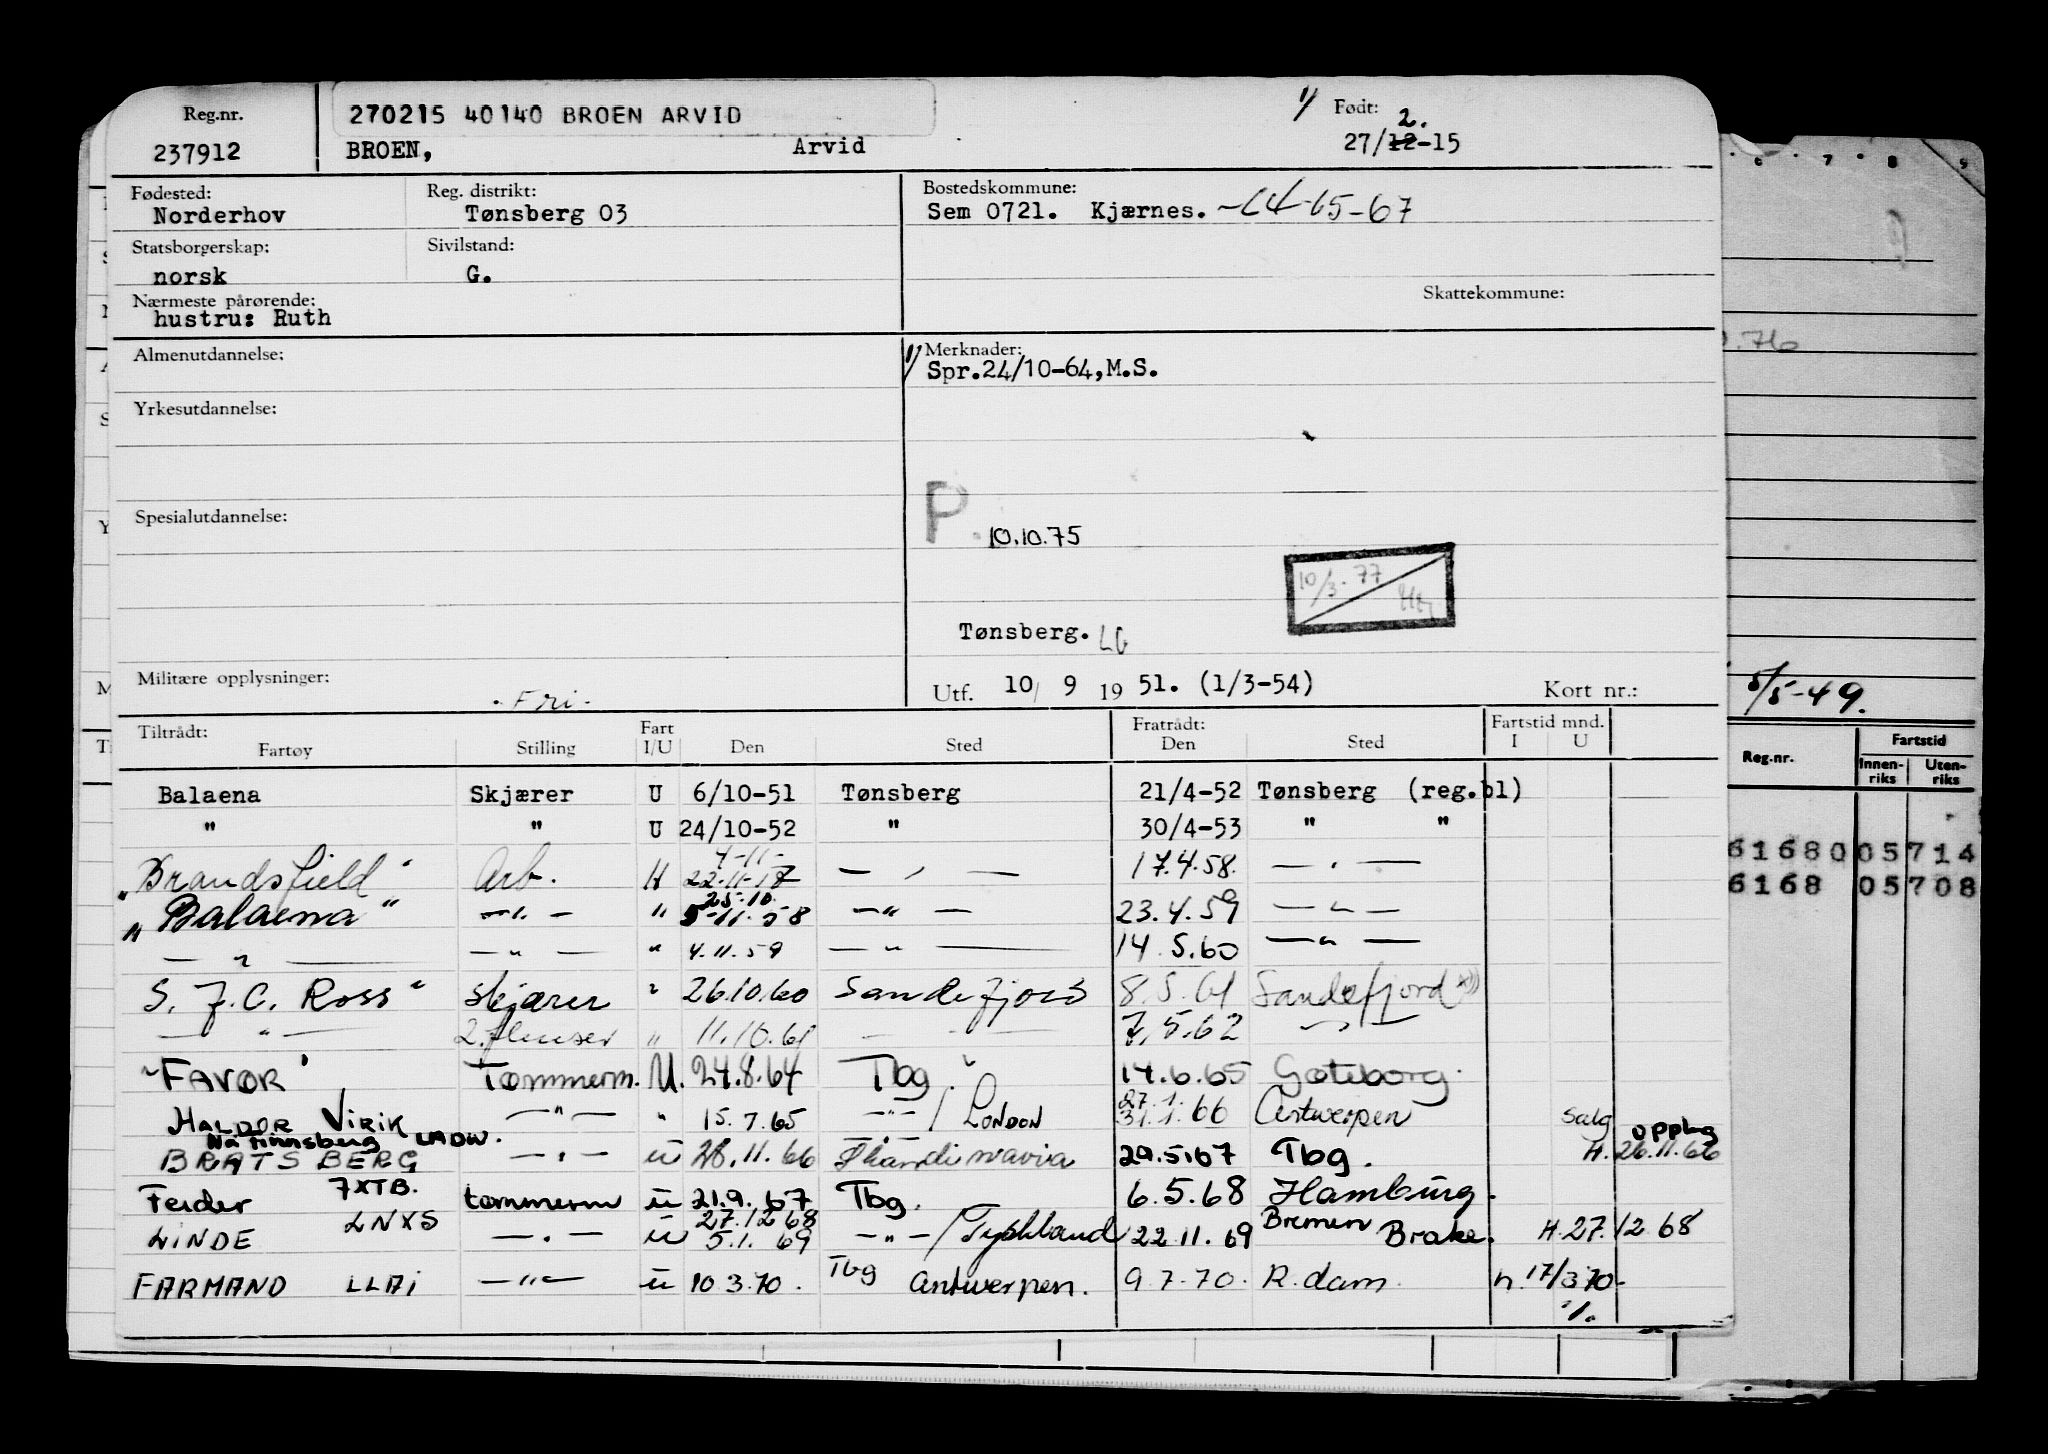 Reg.nr. 270215 40140 BROEN ARVID 1/ Født: 2.
237912 BROEN, Arvid 27/12-15
Fødested: Reg. distrikt: Bostedskommune:
Norderhov Tønsberg 03 Sem 0721. Kjærnes. -64-65-67
Statsborgerskap: Sivilstand:
norsk G.
Nærmeste pårørende: Skattekommune:
hustru: Ruth
Almenutdannelse: 1/ Merknader:
Spr.24/10-64,M.S.
Yrkesutdannelse:
P.
Spesialutdannelse: 10.10.75
10/3-77
Tønsberg. LG
Militære opplysninger: Fri Utf. 10/ 9 19 51. (1/3-54) Kort nr.: 5/5-49.
Tiltrådt: Fart Fratrådt: Fartstid mnd.
Fartøy Stilling I/U Den Sted Den Sted I U
Reg.nr. Fartstid
Innen-riks Uten-riks
Balaena Skjærer U 6/10-51 Tønsberg 21/4-52 Tønsberg (reg.bl)
" " U 24/10-52 " 30/4-53 " "
61680 05714
4-11-
"Brandsfield" Arb. H 22-11-57 — " — 17.4.58. — " —
6168 05708
25.10.
"Balaena" — " — " 5-11-58 — " — 23.4.59 — " —
— " — — " — " 4.11.59 — " — 14.5.60 — " —
S. J.C. Ross" skjærer " 26.10.60 Sandefjord 8.5.61 Sandefjord
— " — 2.flenser " 11.10.61 — 7.5.62 — " —
"FAVOR" Tømmerm. U. 24.8.64 Tbg. 14.6.65 Gøteborg.
27.1.
HALDOR VIRIK — " — " 15.7.65 — " — / LONDON 31.1.66 Antwerpen salg
Nå Finnsberg LADW. opphág
BRATSBERG — " — u 28.11.66 Skandinavia 29.5.67 Tbg. H. 26.11.66
Feider 7XTB. tømmerm u 21.9.67 Tbg. 6.5.68 Hamburg.
LNXS 27.12.68 Bremen
LINDE — " — u 5.1.69 — " — / Tyskland 22.11.69 Brake. H. 27.12.68
FARMAND LLAI — " — u 10.3.70. Tbg Antwerpen. 9.7.70. R.dam. h. 17/3 70.